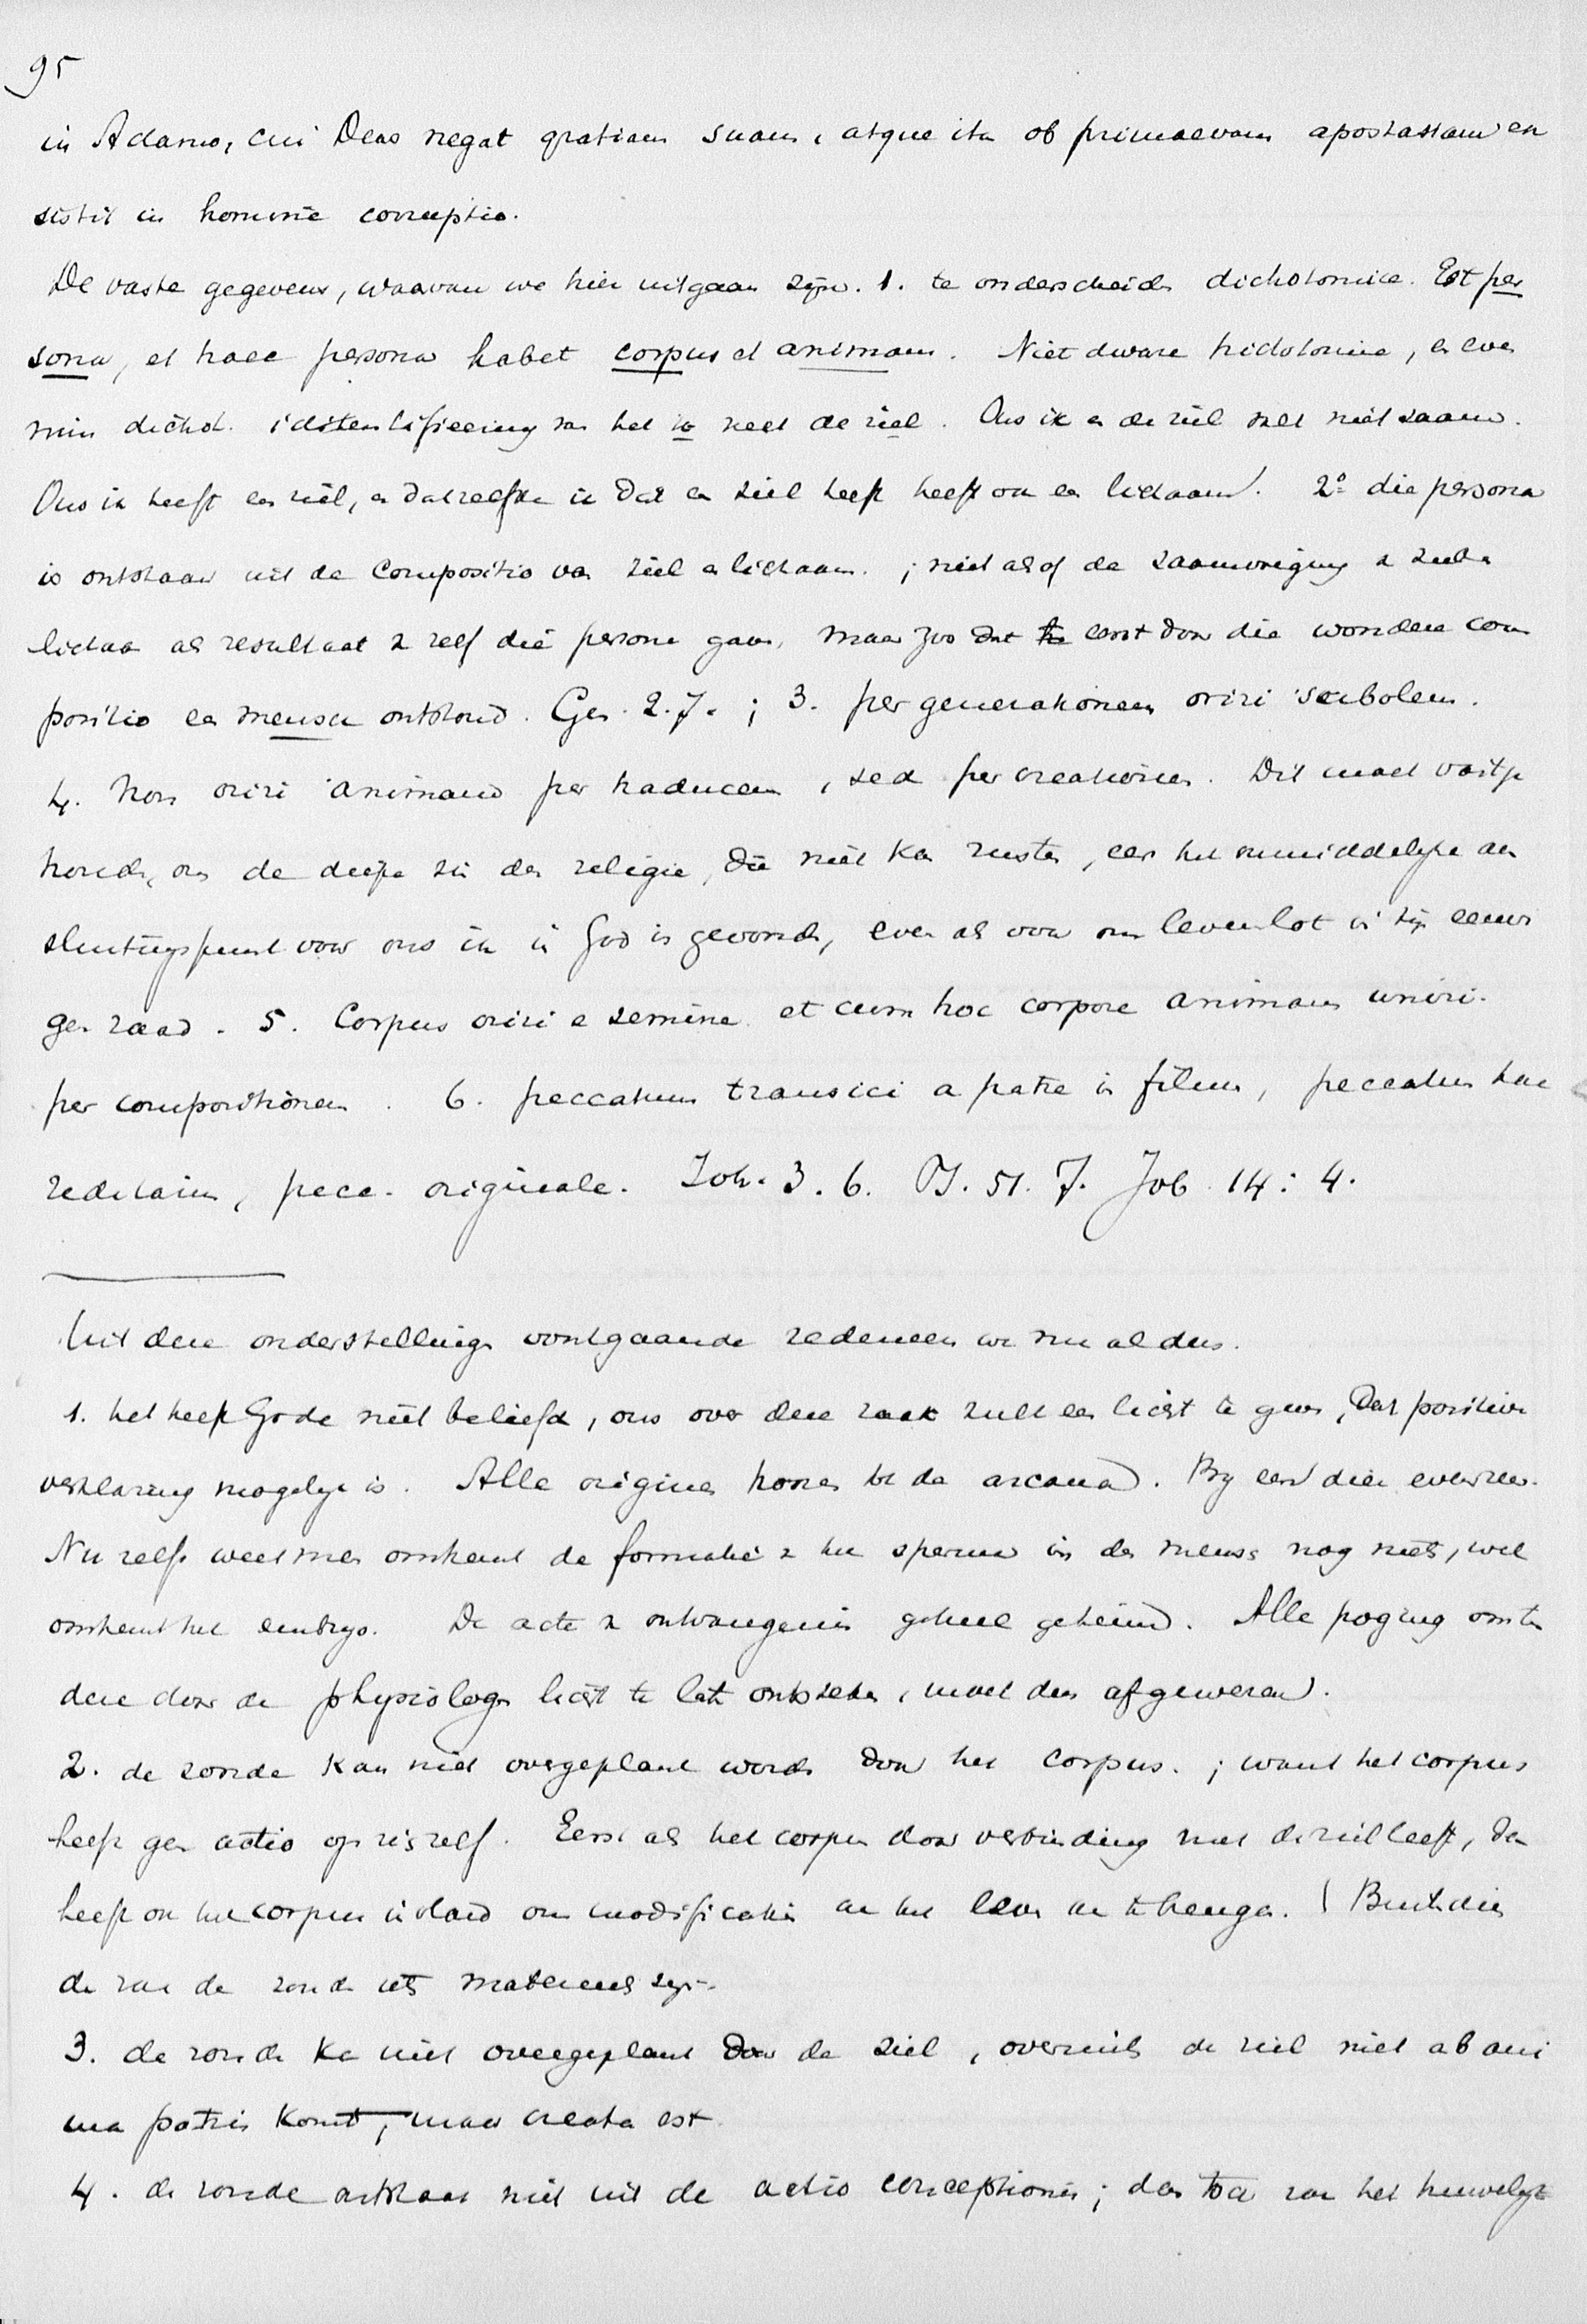 95
in Adamo, cui Deus negat gratiam suam, atque ita ob primaevam apostasiam ex
sistit in homine corruptio.
De vaste gegevens, waarvan we hier uitgaan zijn. 1. te onderscheiden dichotomice. Est per
sona, et haec persona habet corpus et animam. Niet dware trichotomie, en even
min dichot. identifieering van het ik met de ziel. Ons ik en de ziel valt niet saam.
Ons ik heeft een ziel, en datzelfde ik dat een ziel heeft heeft ook een lichaam. 2º die persona
is ontstaan uit de compositio van ziel en lichaam. ; niet alsof de saamvoeging v ziel en
lichaam als resultaat v zelf die persona gaven, maar zoo dat eerst door die wondere com
positio een mensch ontstond. Gen. 2.7. ; 3. per generationem oriri sobolem.
4. Non oriri animam per traducem, sed per creationem. Dit moet vastge
houden, om de diepe zin der religie, die niet kan rusten, eer het onmiddelyke aan
sluitingspunt voor ons ik in God is gevonden, even als voor ons levenslot in zijn eeuwi
gen raad. 5. Corpus oriri e semine et cum hoc corpore animam uniri
per compositionem. 6. peccatum transici a patre in filium, peccatum hae
reditarium, pecc. originale. Joh. 3.6. Ps. 51.7. Job 14:4.
Uit deze onderstellingen voortgaande redeneeren we nu aldus.
1. het heeft Gode niet beliefd, ons over deze zaak zulk een licht te geven, dat positieve
verklaring mogelyk is. Alle origines hooren tot de arcana. By een dier evenzeer.
Nu zelfs weet men omtrent de formatie v het sperma in den mensch nog niets, wel
omtrent het embryo. De acte v ontvangenis geheel geheim. Alle poging om te
deze door de physiologen licht te laten ontsteken, moet dus afgewezen.
2. de zonde kan niet overgeplant worden door het corpus. ; want het corpus
heeft geen actio op zichzelf. Eerst als het corpus door verbinding met de ziel leeft, dan
heeft ook het corpus invloed om modificatie aan het leven aan te brengen. ( Buitendien
dan zou de zonde iets materieels zijn.
3. de zonde kan niet overgeplant door de ziel, overmits de ziel niet ab ani
ma patris komt, maar creata est
4. de zonde ontstaat niet uit de actio conceptionis; dan toch zou het huwelyk